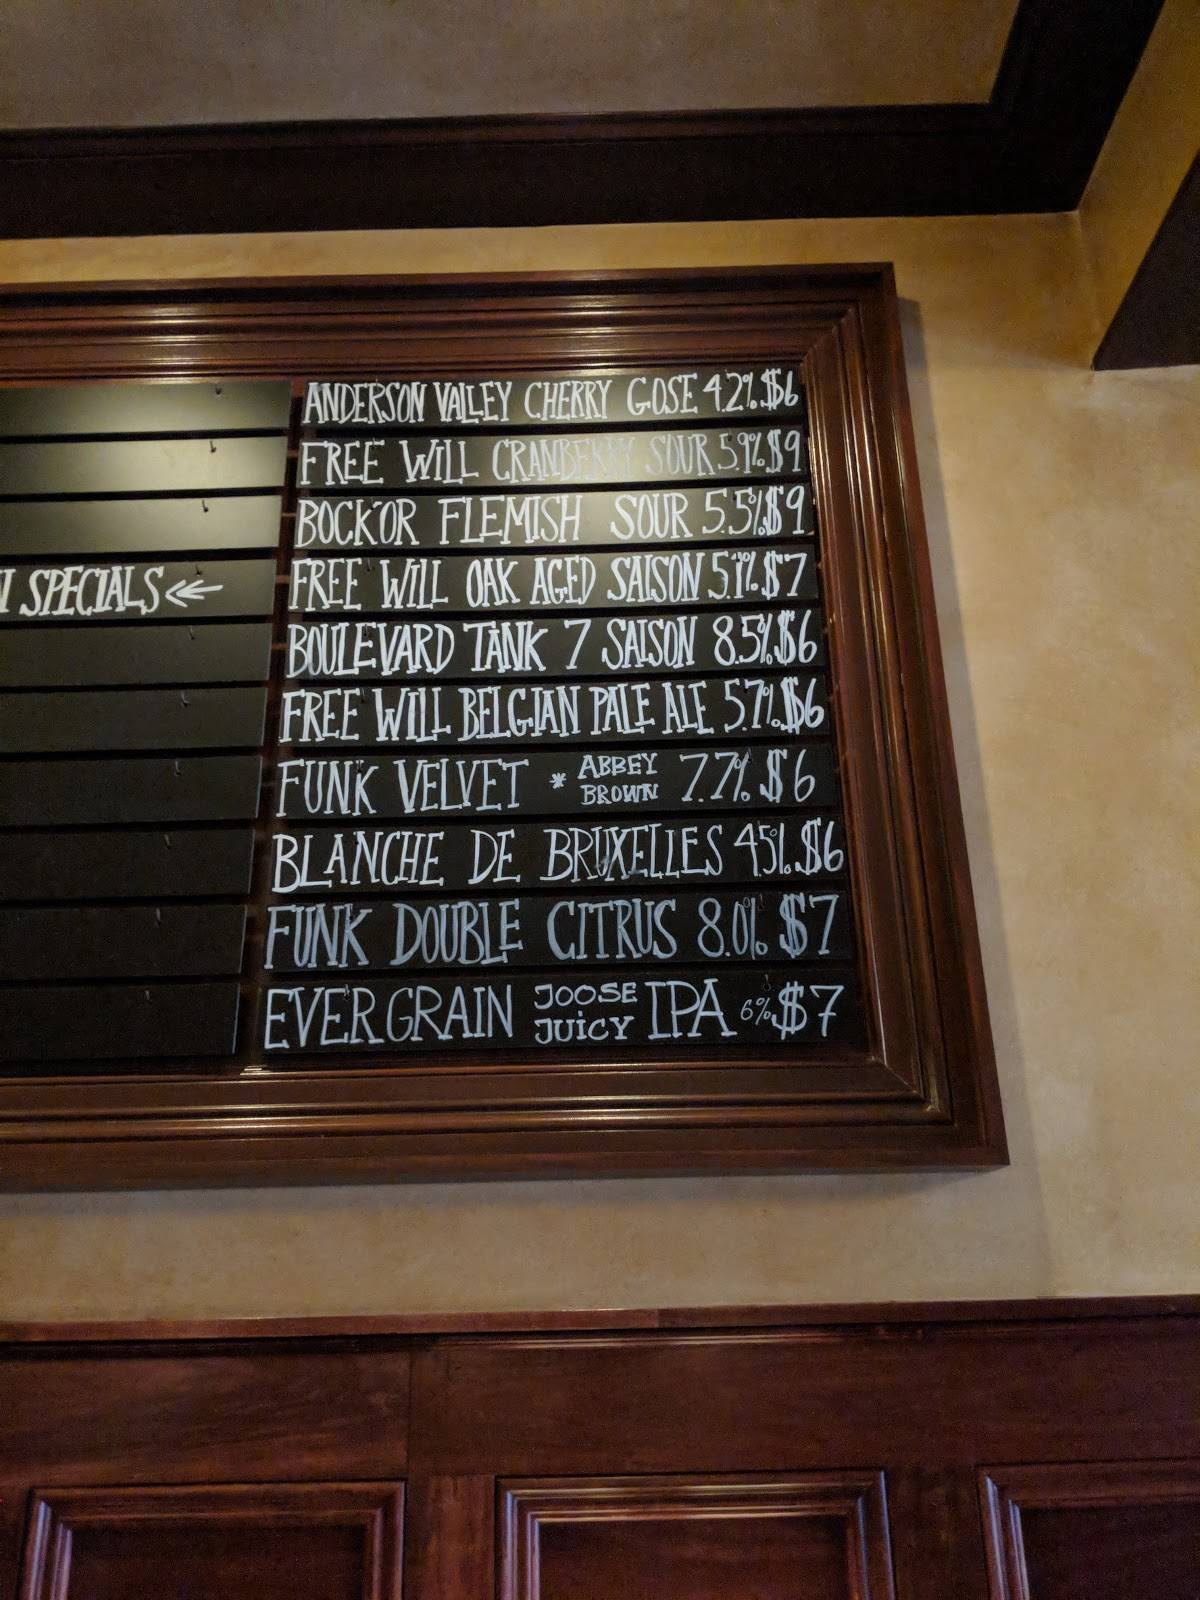 SPECIALS <<—
ANDERSON VALLEY CHERRY GOSE 4.2% $6
FREE WILL CRANBERRY SOUR 5.9% $9
BOCKOR FLEMISH SOUR 5.5% $9
FREE WILL OAK AGED SAISON 5.1% $7
BOULEVARD TANK 7 SAISON 8.5% $6
FREE WILL BELGIAN PALE ALE 5.7% $6
FUNK VELVET * ABBEY BROWN 7.7% $6
BLANCHE DE BRUXELLES 4.5% $6
FUNK DOUBLE CITRUS 8.0% $7
EVERGRAIN JOOSE JUICY IPA 6% $7